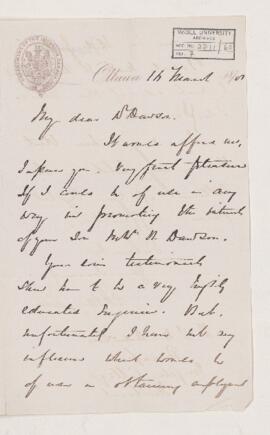 McGILL UNIVERSITY
ARCHIVES
ACC. NO. 2211 / 62
REF. 7
Ottawa 14 March
My dear Dr Dawson.
It would afford me,
I assure you, very great pleasure
If I could be of use in any
way in promoting the interests
of your Son Mr Wm B. Dawson.
Your own testimonials
shew him to be a very highly
educated Engineer. But,
unfortunately I have not any
influence which would be
of use in obtaining employment